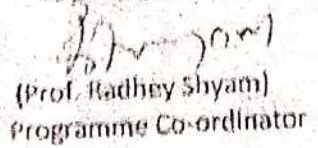 (Prof. Radhey Shyam)
Programme Co-ordinator